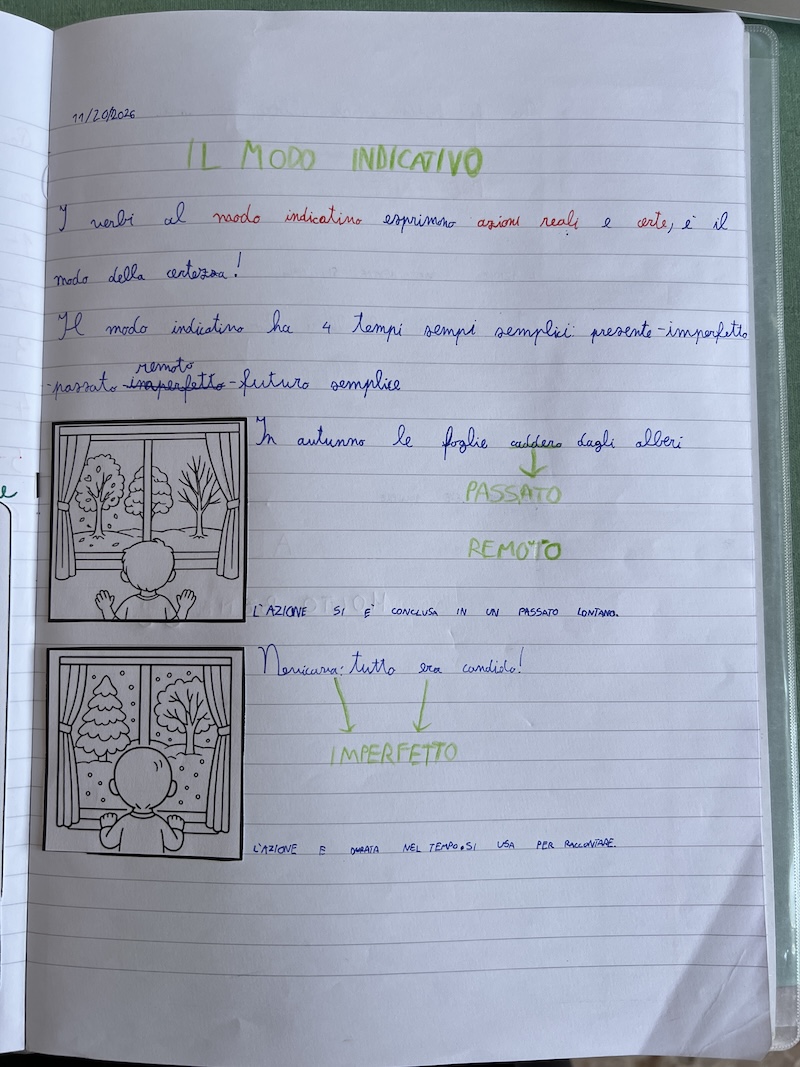 11/20/2026
IL MODO INDICATIVO
I verbi al modo indicativo esprimono azioni reali e certe, è il
modo della certezza!
Il modo indicativo ha 4 tempi sempi semplici: presente-imperfetto
remoto
-passato imperfetto-futuro semplice
In autunno le foglie caddero dagli alberi
PASSATO
REMOTO
L'AZIONE SI E' CONCLUSA IN UN PASSATO LONTANO.
Nevicava: tutto era candido!
IMPERFETTO
L'AZIONE E DURATA NEL TEMPO. SI USA PER RACCONTARE.